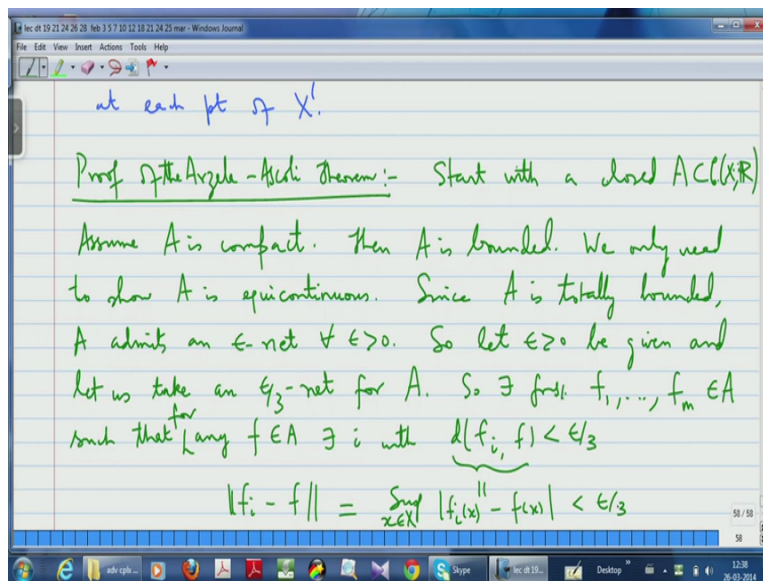 lec dt 19 21 24 26 28 feb 3 5 7 10 12 18 21 24 25 mar - Windows Journal
File Edit View Insert Actions Tools Help
at each pt of X!
Proof of the Arzela-Ascoli Theorem:- Start with a closed A⊂C(X,ℝ)
Assume A is compact. Then A is bounded. We only need
to show A is equicontinuous. Since A is totally bounded,
A admits an ε-net ∀ ε>0. So let ε>0 be given and
let us take an ε/3-net for A. So ∃ fns. f₁,..., fₘ ∈A
such that for any f∈A ∃ i with d(fᵢ, f) < ε/3
||
‖fᵢ - f‖ = Sup x∈X |fᵢ(x) - f(x)| < ε/3
58 / 58
58
adv cplx ... Skype lec dt 19... Desktop » 12:38
26-03-2014